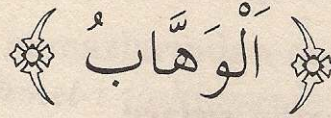 اَلْوَهَّابُ